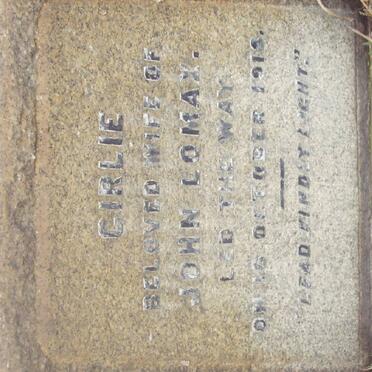 GIRLIE
BELOVED WIFE OF
JOHN LOMAX.
LED THE WAY
ON 16 OCTOBER 1918.
"LEAD KINDLY LIGHT."